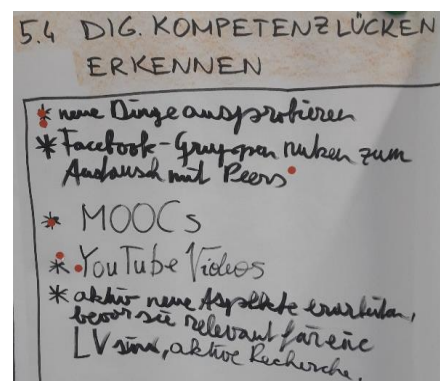 5.4 DIG. KOMPETENZLÜCKEN
ERKENNEN
* neue Dinge ausprobieren
* Facebook-Gruppen nutzen zum
Austausch mit Peers
* MOOCs
* YouTube Videos
* aktiv neue Aspekte erarbeiten,
bevor sie relevant für eine
LV sind, aktive Recherche.